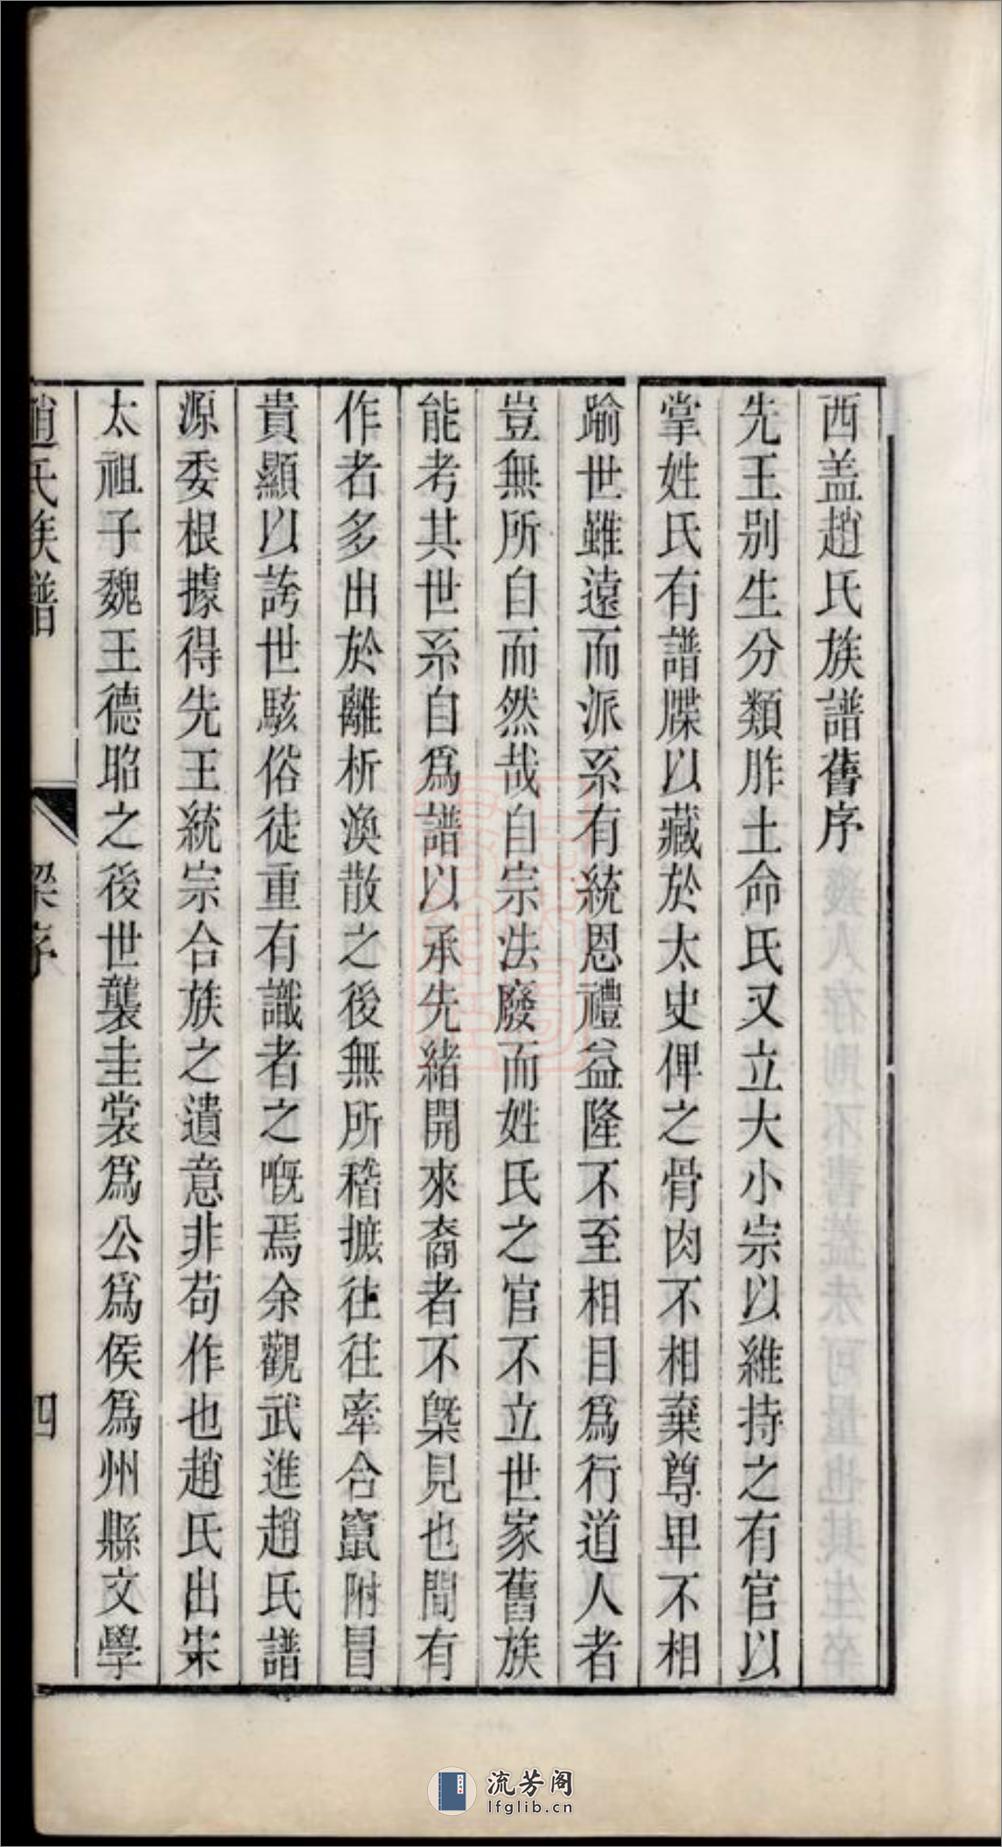 西盖趙氏族譜舊序
先王别生分類胙土命氏又立大小宗以維持之有官以
掌姓氏有譜牒以藏於太史俾之骨肉不相棄尊卑不相
踰世雖遠而派系有統恩禮益隆不至相目爲行道人者
豈無所自而然哉自宗法廢而姓氏之官不立世家舊族
能考其世系自爲譜以承先緒開來裔者不槩見也間有
作者多出於離析渙散之後無所稽摭往往牽合竄附冒
貴顯以誇世駭俗徒重有識者之嘅焉余觀武進趙氏譜
源委根據得先王統宗合族之遺意非苟作也趙氏出宋
太祖子魏王德昭之後世襲圭裳爲公爲侯爲州縣文學
趙氏族譜
梁序
四
流芳阁
lfglib.cn